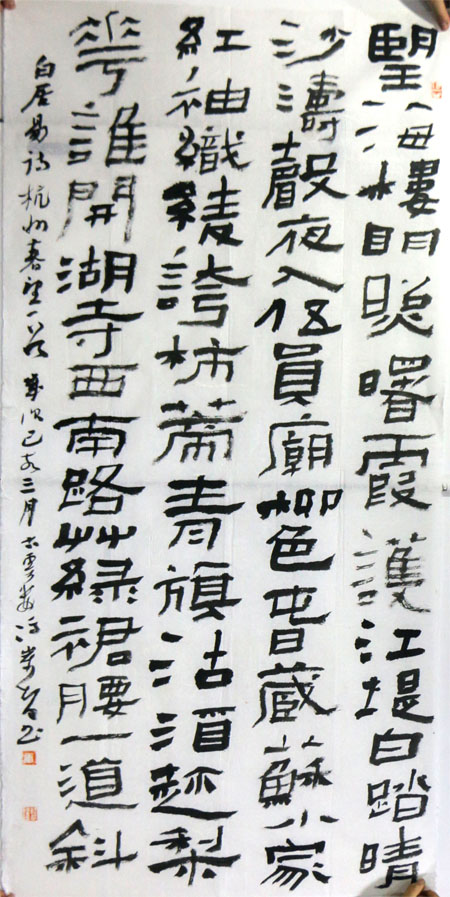 望海樓明照曙霞護江堤白踏晴
沙濤聲夜入伍員廟柳色春藏蘇小家
紅袖織綾誇柿蒂青旗沽酒趁梨
花誰開湖寺西南路艸綠裙腰一道斜
白居易诗杭州春望一首歲次己亥三月